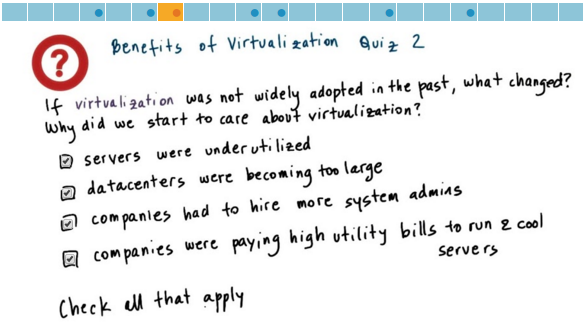 ?
Benefits of Virtualization Quiz 2
If virtualization was not widely adopted in the past, what changed?
Why did we start to care about virtualization?
servers were underutilized
datacenters were becoming too large
companies had to hire more system admins
companies were paying high utility bills to run & cool
servers
Check all that apply